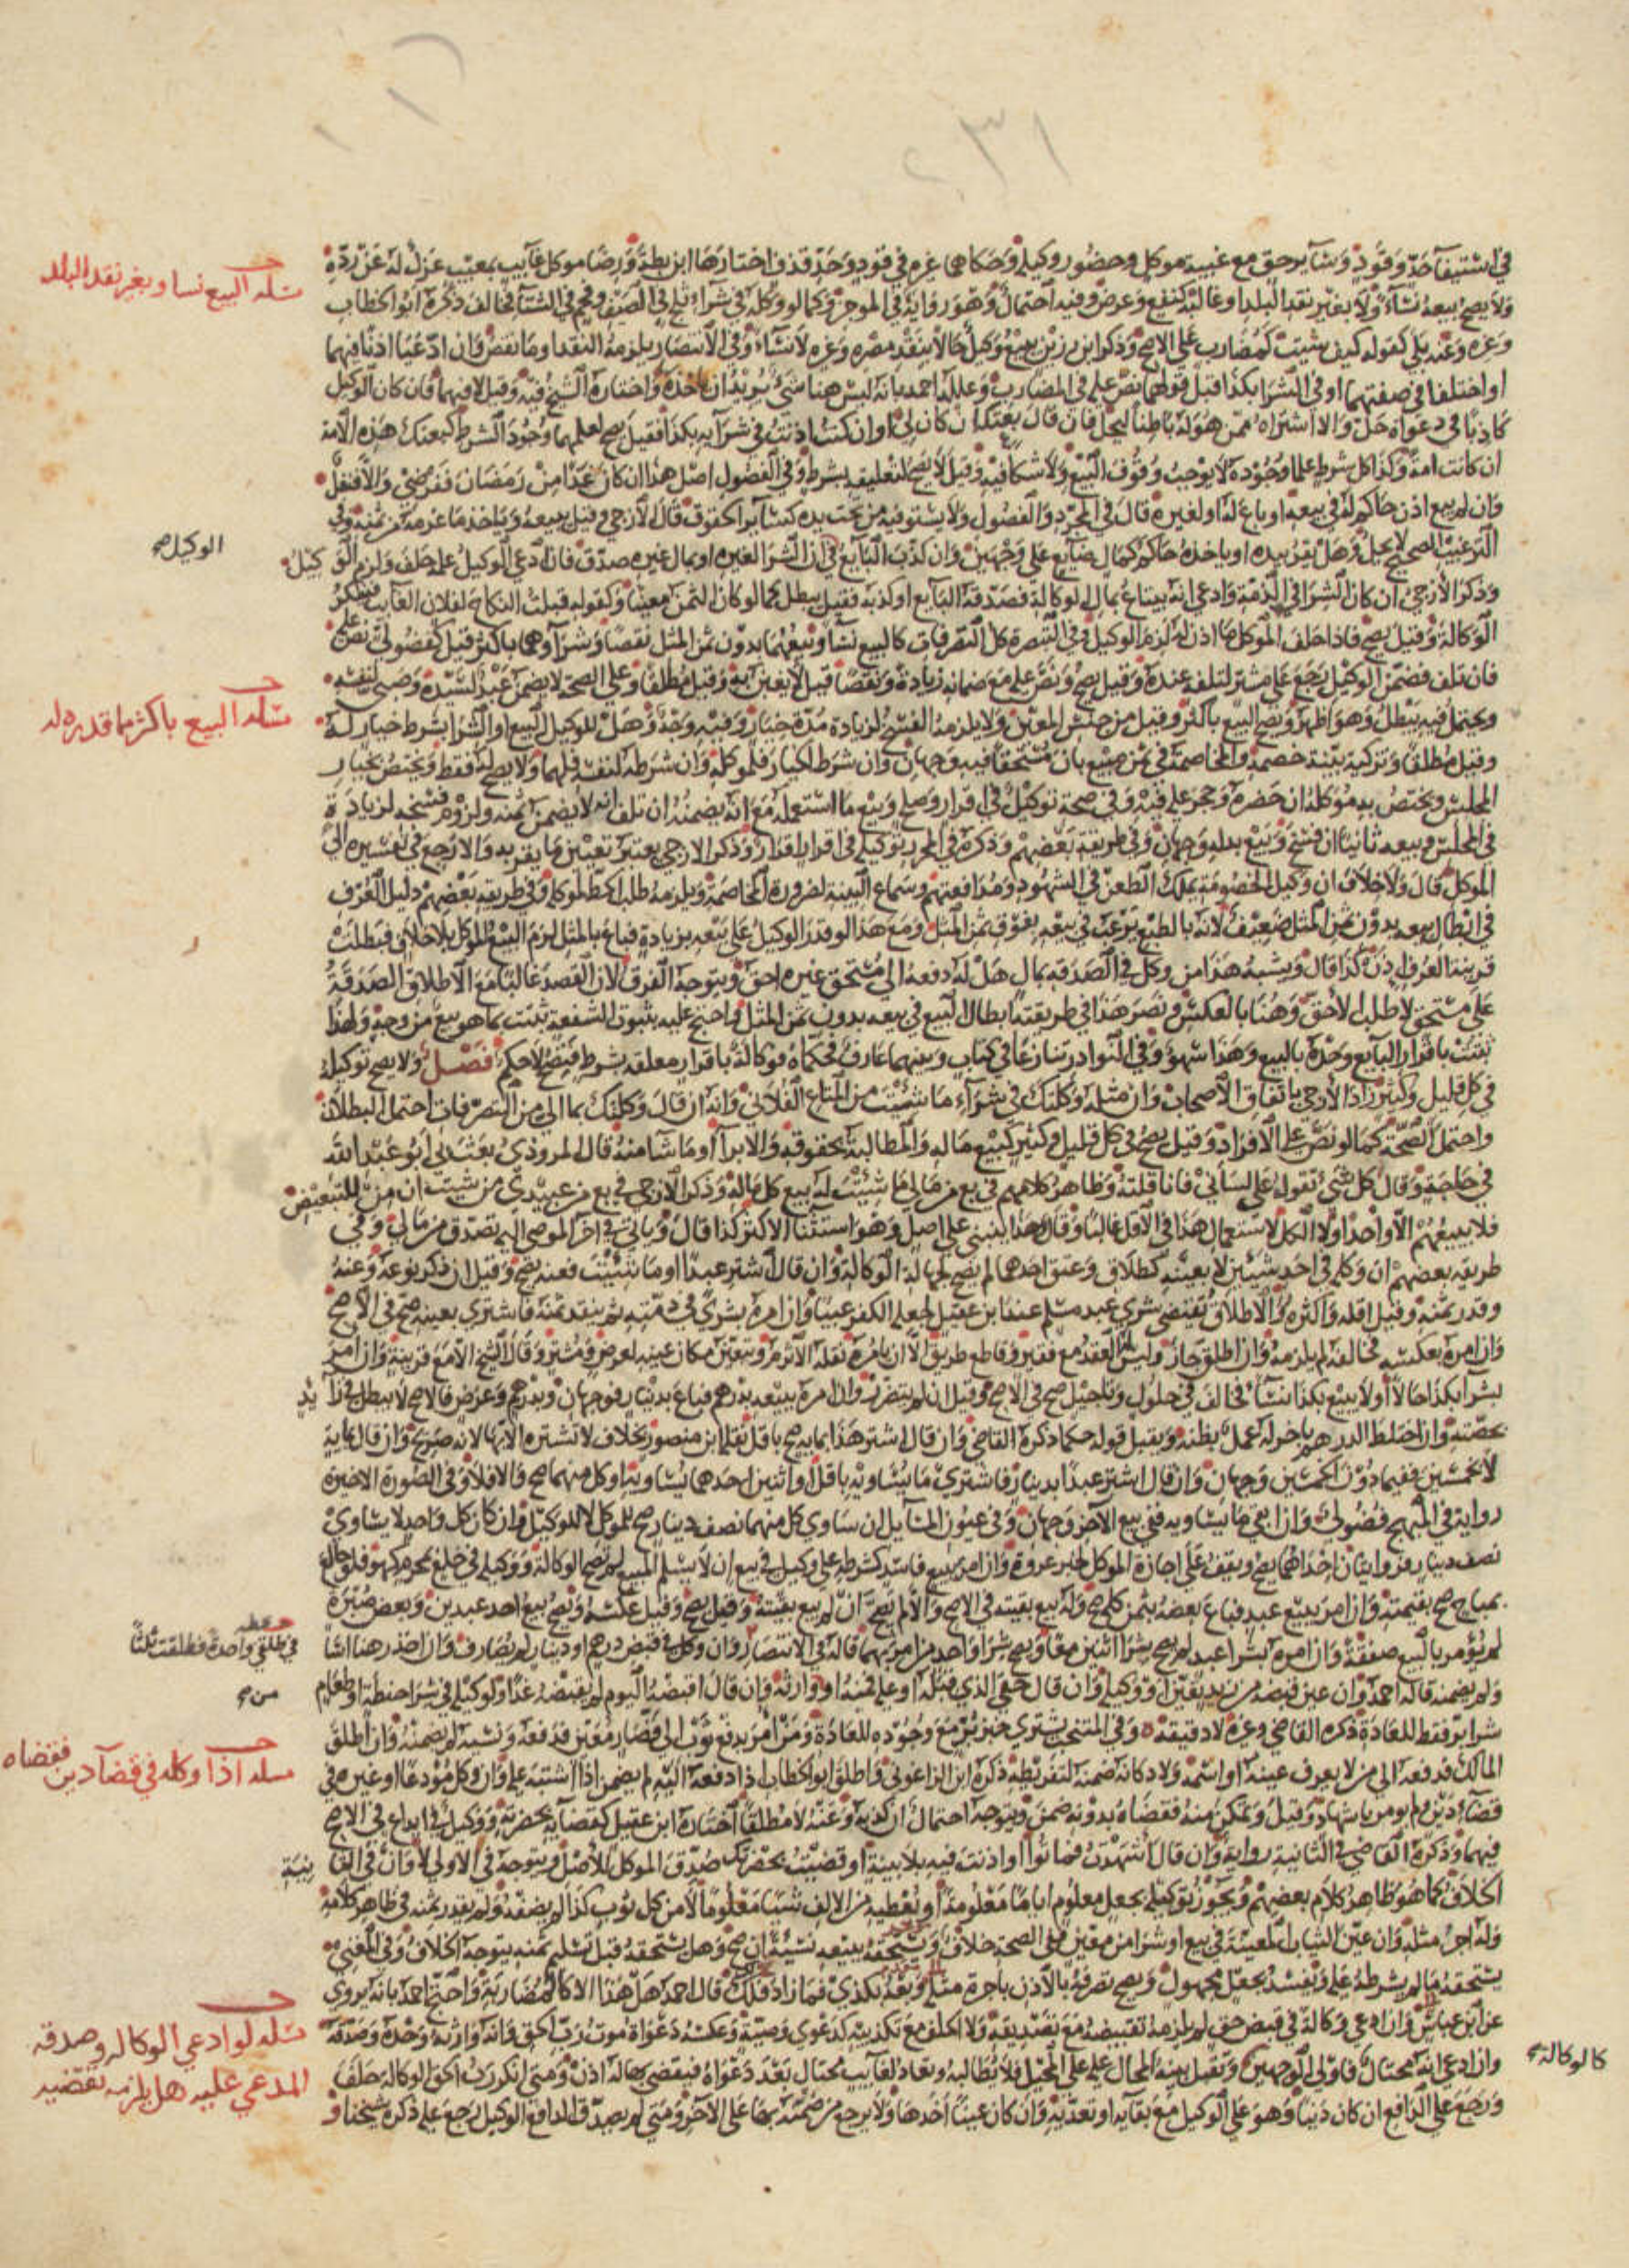 في استيفاء حد وقود وسائر حق مع غيبة موكل وحضور وكيله وحكاهما غيره في قود وحد قذف اختارها ابن بطة ورضا موكل غائب بمعيب عزل له عن رده
ولا يصح بيعه نساء ولا بغير نقد البلد او غالبه كنفع وعرض وفيه احتمال وهو رواية في الموجز وكما لو وكله في شراء ثلج في الصيف وفحم في الشتاء فخالف ذكره ابو الخطاب
وغيره وعنه بلى كقوله كيف شئت كمضارب على الاصح وذكر ابن رزين يبيع وكيل حالا بنقد مصره وغيره لا نساء وفي الانتصار يلزمه النقد او ما نقص وان ادعيا اذنا فيهما
او اختلفا في صفتهما او في الشرا بكذا قبل قولهما نص عليه في المضارب وعلله احمد بانه ليس هنا شيء يريد ان ياخذه واختاره الشيخ فيه وقيل لا فيهما فان كان الوكيل
كاذبا في دعواه حل والا اشتراه ممن هو له باطنا ليحل فان قال بعتك ان كان لي او ان كنت اذنت في شرائه بكذا فقيل يصح لعلمهما وجود الشرط كبعتك هذه الامة
ان كانت امة وكذا كل شرط علما وجوده لا يوجب وقوف البيع ولا شكا فيه وقيل لا يصح لتعليقه بشرط وفي الفصول اصل هذا ان كان غدا من رمضان ففرضي والا فنفل
وان لم يبع اذن حاكم له في بيعه او باع له او لغيره قال في المجرد والفصول ولا يستوفيه من تحت يده كسائر الحقوق قال الازجي وقيل يبيعه وياخذ ما غرمه من ثمنه وفي
الترغيب الصحيح لا يحل وهل يقر بيده او ياخذه حاكم كمال ضائع على وجهين وان كذب البائع في ان الشرا لغيره او بمال غيره صدق فان ادعى الوكيل علمه حلف ولزم الوكيل
الوكيل صح
وذكر الازجي ان كان الشرا في الذمة وادعى انه يبتاع بمال الوكالة فصدقه البائع او كذبه فقيل يبطل كما لو كان الثمن معينا وكقوله قبلت النكاح لفلان الغائب فينكر
الوكالة وقيل يصح فاذا حلف الموكل ما اذن له لزم الوكيل وفي التبصرة كل التصرفات كالبيع نسأ وبيعهما بدون ثمن المثل نقصا وشراؤهما باكثر قيل كفضولي نص عليه
فان تلف فضمن الوكيل رجع على مشتر لتلفه عنده وقيل يصح ونص عليه مع ضمانه زيادة ونقصا قيل لا بغبن اية وقيل مطلقا وعلى الصحة لا يضمن عبد لسيده وصبي لنفسه
ويحتمل فيه يبطل وهو اظهر ويصح البيع باكثر وقيل من جنس المعين ولا يلزمه الفسخ لزيادة مدة خيار وفيه وجه وهل للوكيل البيع او الشرا بشرط خيار له
وقيل مطلقا وتزكية بينة خصمه والمخاصمة في ثمن مبيع بان مستحقا فيه وجهان وان شرط الخيار فلموكله وان شرطه لنفسه فلهما ولا يصح له فقط ويختص بخيار
المجلس ويختص به موكله ان حضره وحجر عليه فيه وفي صحة توكيل في اقرار وصلح وبيع ما استعمله مع انه يضمنه ان تلف انه لا يضمن ثمنه ولزوم فسخه لزيادة
في المجلس وبيعه ثانيا ان فسخ وبيع بدله وجهان وفي طريقة بعضهم وذكره في المحرر توكيله في اقرار اقرار وذكر الازجي يعتبر تعيين ما يقر به والا رجع في تفسيره الى
الموكل قال ولا خلاف ان وكيل الخصومة يملك الطعن في الشهود ومدافعتهم وسماع البينة لضرورة المخاصمة ويلزمه طلب الحظ لموكله وفي طريقة بعضهم دليل العرف
في ابطال بيعه بدون ثمن المثل ضعيف لانه بالطبع يرغب في بيعه بفوق ثمن المثل ومع هذا لو قدر الوكيل على بيعه بزيادة فباع بالمثل لزم البيع الموكل بلا خلاف فبطلت
قرينة العرف اذن كذا قال ويشبه هذا من وكل في الصدقة بمال هل له دفعه الى مستحق غيره احق ويتوجه الفرق لان القصد غالبا مع الاطلاق الصدقة
على مستحق لا طلب الاحق وهنا بالعكس ونصر هذا في طريقته ابطال البيع في بيعه بدون ثمن المثل واحتج عليه بثبوت الشفعة تثبت بما هو بيع من وجه ولهذا
تثبت باقرار البائع وحده بالبيع وهذا سهو وفي النوادر تنازعا في كتاب وبينهما عارف فحكماه فوكالة باقرار معلقة بشرط فيصح لا حكم فصل ولا يصح توكيله
في كل قليل وكثير زاد الازجي باتفاق الاصحاب وان مثله وكلتك في شراء ما شئت من المتاع الفلاني وانه ان قال وكلتك بما الي من التصرفات احتمل البطلان
واحتمل الصحة كما لو نص على الافراد وقيل يصح في كل قليل وكثير كبيع ماله والمطالبة بحقوقه والابرا او ما شا منه قال المروذي بعث بي ابو عبد الله
في حاجة وقال كل شيء تقوله على لساني فانا قلته وظاهر كلامهم في بع من مالي ما شئت له بيع كل ماله وذكر الازجي في بع من عبيدي من شئت ان من للتبعيض
فلا يبيعهم الا واحدا ولا الكل لاستعمال هذا في الاقل غالبا وقال هذا ينبني على اصل وهو استثنا الاكثر كذا قال وياتي في اخر الموصى اليه تصدق من مالي وفي
طريقة بعضهم ان وكله في احد شيئين لا بعينه كطلاق وعتق احدهما لم يصح لجهالة الوكالة وان قال اشتر عبدا او ما شئت فعنه يصح وقيل ان ذكر نوعه وعنه
وقدر ثمنه وقيل اقله واكثره والاطلاق يقتضي شرى عبد مسلم عند ابن عقيل لجعله الكفر عيبا وان امره بشرى في ذمته ثم ينقد ثمنه فاشترى بعينه صح في الاصح
وان امره بعكسه فخالفه لم يلزمه وان اطلق جاز وليس له العقد مع فقير وقاطع طريق الا ان يامره نقله الاثرم ويتعين مكان عينه لغرض ومشتر وقال الشيخ الا مع قرينة وان امر
بشرا بكذا حالا او لا يبيع بكذا نسأ فخالف في حلول وتاجيل صح في الاصح وقيل ان لم يتضرر وان امره ببيعه بدرهم فباع بدينار فوجهان وبدرهم وعرض فالاصح لا يبطل في زائد
بحصته وان اختلط الدرهم باخر له عمل بظنه ويقبل قوله حكما ذكره القاضي وان قال اشتر هذا بمايه صح باقل نقله ابن منصور بخلاف لا تشتره الا بها لانه صريح وان قال بمايه
لا بخمسين ففيما دون الخمسين وجهان وان قال اشتر عبدا بدينار فاشترى ما يساويه باقل او اثنين احدهما يساويه او كل منهما صح والا فلا وفي الصورة الاخيرة
رواية في المبهج فضولي وان بقي ما يساويه ففي بيع الاخر وجهان وفي عيون المسائل ان ساوى كل منهما نصف دينار صح للموكل لا للوكيل وان كان كل واحد لا يساوي
نصف دينار فروايتان احداهما يصح ويقف على اجازة الموكل لخبر عروة وان امره ببيع فاسد كشرطه على وكيل في بيع ان لا يسلم المبيع لم تصح الوكالة ووكيله في خلع بمحرم كهو فلو خالع
بمباح صح بقيمته وان امر ببيع عبد فباع بعضه بثمن كله صح وله بيع بقيته في الاصح والا لم يصح ان لم يبع بقيته وقيل يصح وقيل عكسه ويصح بيع احد عبدين وبعض صبرة
لم يؤمر بالبيع صفقة وان امره بشرا عبد لم يصح شرا اثنين معا ويصح شرا واحد من امر بهما قاله في الانتصار وان وكل في قبض درهم او دينار لم يصارف وان اخذ رهنا اسا
ولم يضمنه قاله احمد وان عين قبضه من زيد تعين او ووكيله وان قال حقي الذي قبله او عليه فمنه او وارثه وان قال اقبضه اليوم لم يقبضه غدا ولو وكيله في شرا حنطة او طعام
من صح
شرا بر فقط للعادة ذكره القاضي وغيره لا دقيقه وفي المنتخب يشتري خبز بر مع وجوده للعادة ومن امر بدفع ثوب الى قصار معين فدفعه ونسيه لم يضمنه وان اطلق
المالك فدفعه الى من لا يعرف عينه او اسمه ولا دكانه ضمنه لتفريطه ذكره ابن الزاغوني واطلق ابو الخطاب اذا دفعه اليه لم يضمن اذا اشتبه عليه وان وكل مودعا او غيره في
قضاء دين ولم يومر باشهاد وقيل وتمكن منه فقضاه بدونه ضمن ويتوجه احتمال ان كذبه وعنه لا مطلقا اختاره ابن عقيل كقضائه بحضرته ووكيل في ايداع في الاصح
فيهما وذكره القاضي في الثانية رواية وان قال اشهدت فماتوا او اذنت فيه بلا بينة او قضيت بحضرتك صدق الموكل للاصل ويتوجه في الاولى لا وان في الثانية
الخلاف كما هو ظاهر كلام بعضهم ويجوز توكيله بجعل معلوم اياما معلومة او يعطيه من الالف شيئا معلوما لا من كل ثوب كذا لم يصفه ولم يقدر ثمنه في ظاهر كلامه
وله اجر مثله وان عين الثياب المعينة في بيع او شرا من معين ففي الصحة خلاف ويستحقه ببيعه نسيئة ان صح وهل يستحقه قبل تسليم ثمنه يتوجه الخلاف وفي المغني
يستحقه ما لم يشرطه عليه ويفسد بجعل مجهول ويصح تصرفه بالاذن باجرة مثله وبعه بكذا فما زاد فلك قال احمد هل هذا الا كالمضاربة واحتج احمد بانه يروى
عن ابن عباس وان ادعى وكالة في قبض حق لم يلزمه تقبيضه مع تصديقه ولا الحلف مع تكذيبه كدعوى وصية وعكسه دعواه موت رب الحق وانه وارثه وحده وصدقه
وان ادعى انه محتال فاولى الوجهين كالوكالة وتقبل بينة المحال عليه على المحيل فلا يطالبه وتعاد لغائب محتال بعد دعواه فيقضى بها له اذن ومتى انكر رب الحق الوكالة حلف
ورجع على الدافع ان كان دينا وهو على الوكيل مع بقائه او تعديه وان كان عينا اخذها ولا يرجع من ضمنه بها على الاخر ومتى لم يصدق الدافع الوكيل رجع عليه ذكره شيخنا و
مسئلة البيع نسا وبغير نقد البلد
مسئلة البيع باكثر مما قدره له
في طلقي واحدة فطلقت ثلاثا
مسئلة اذا وكله في قضاء دين فقضاه
مسئلة لو ادعى الوكالة وصدقه
المدعى عليه هل يلزمه تقضيه
كالوكالة صح